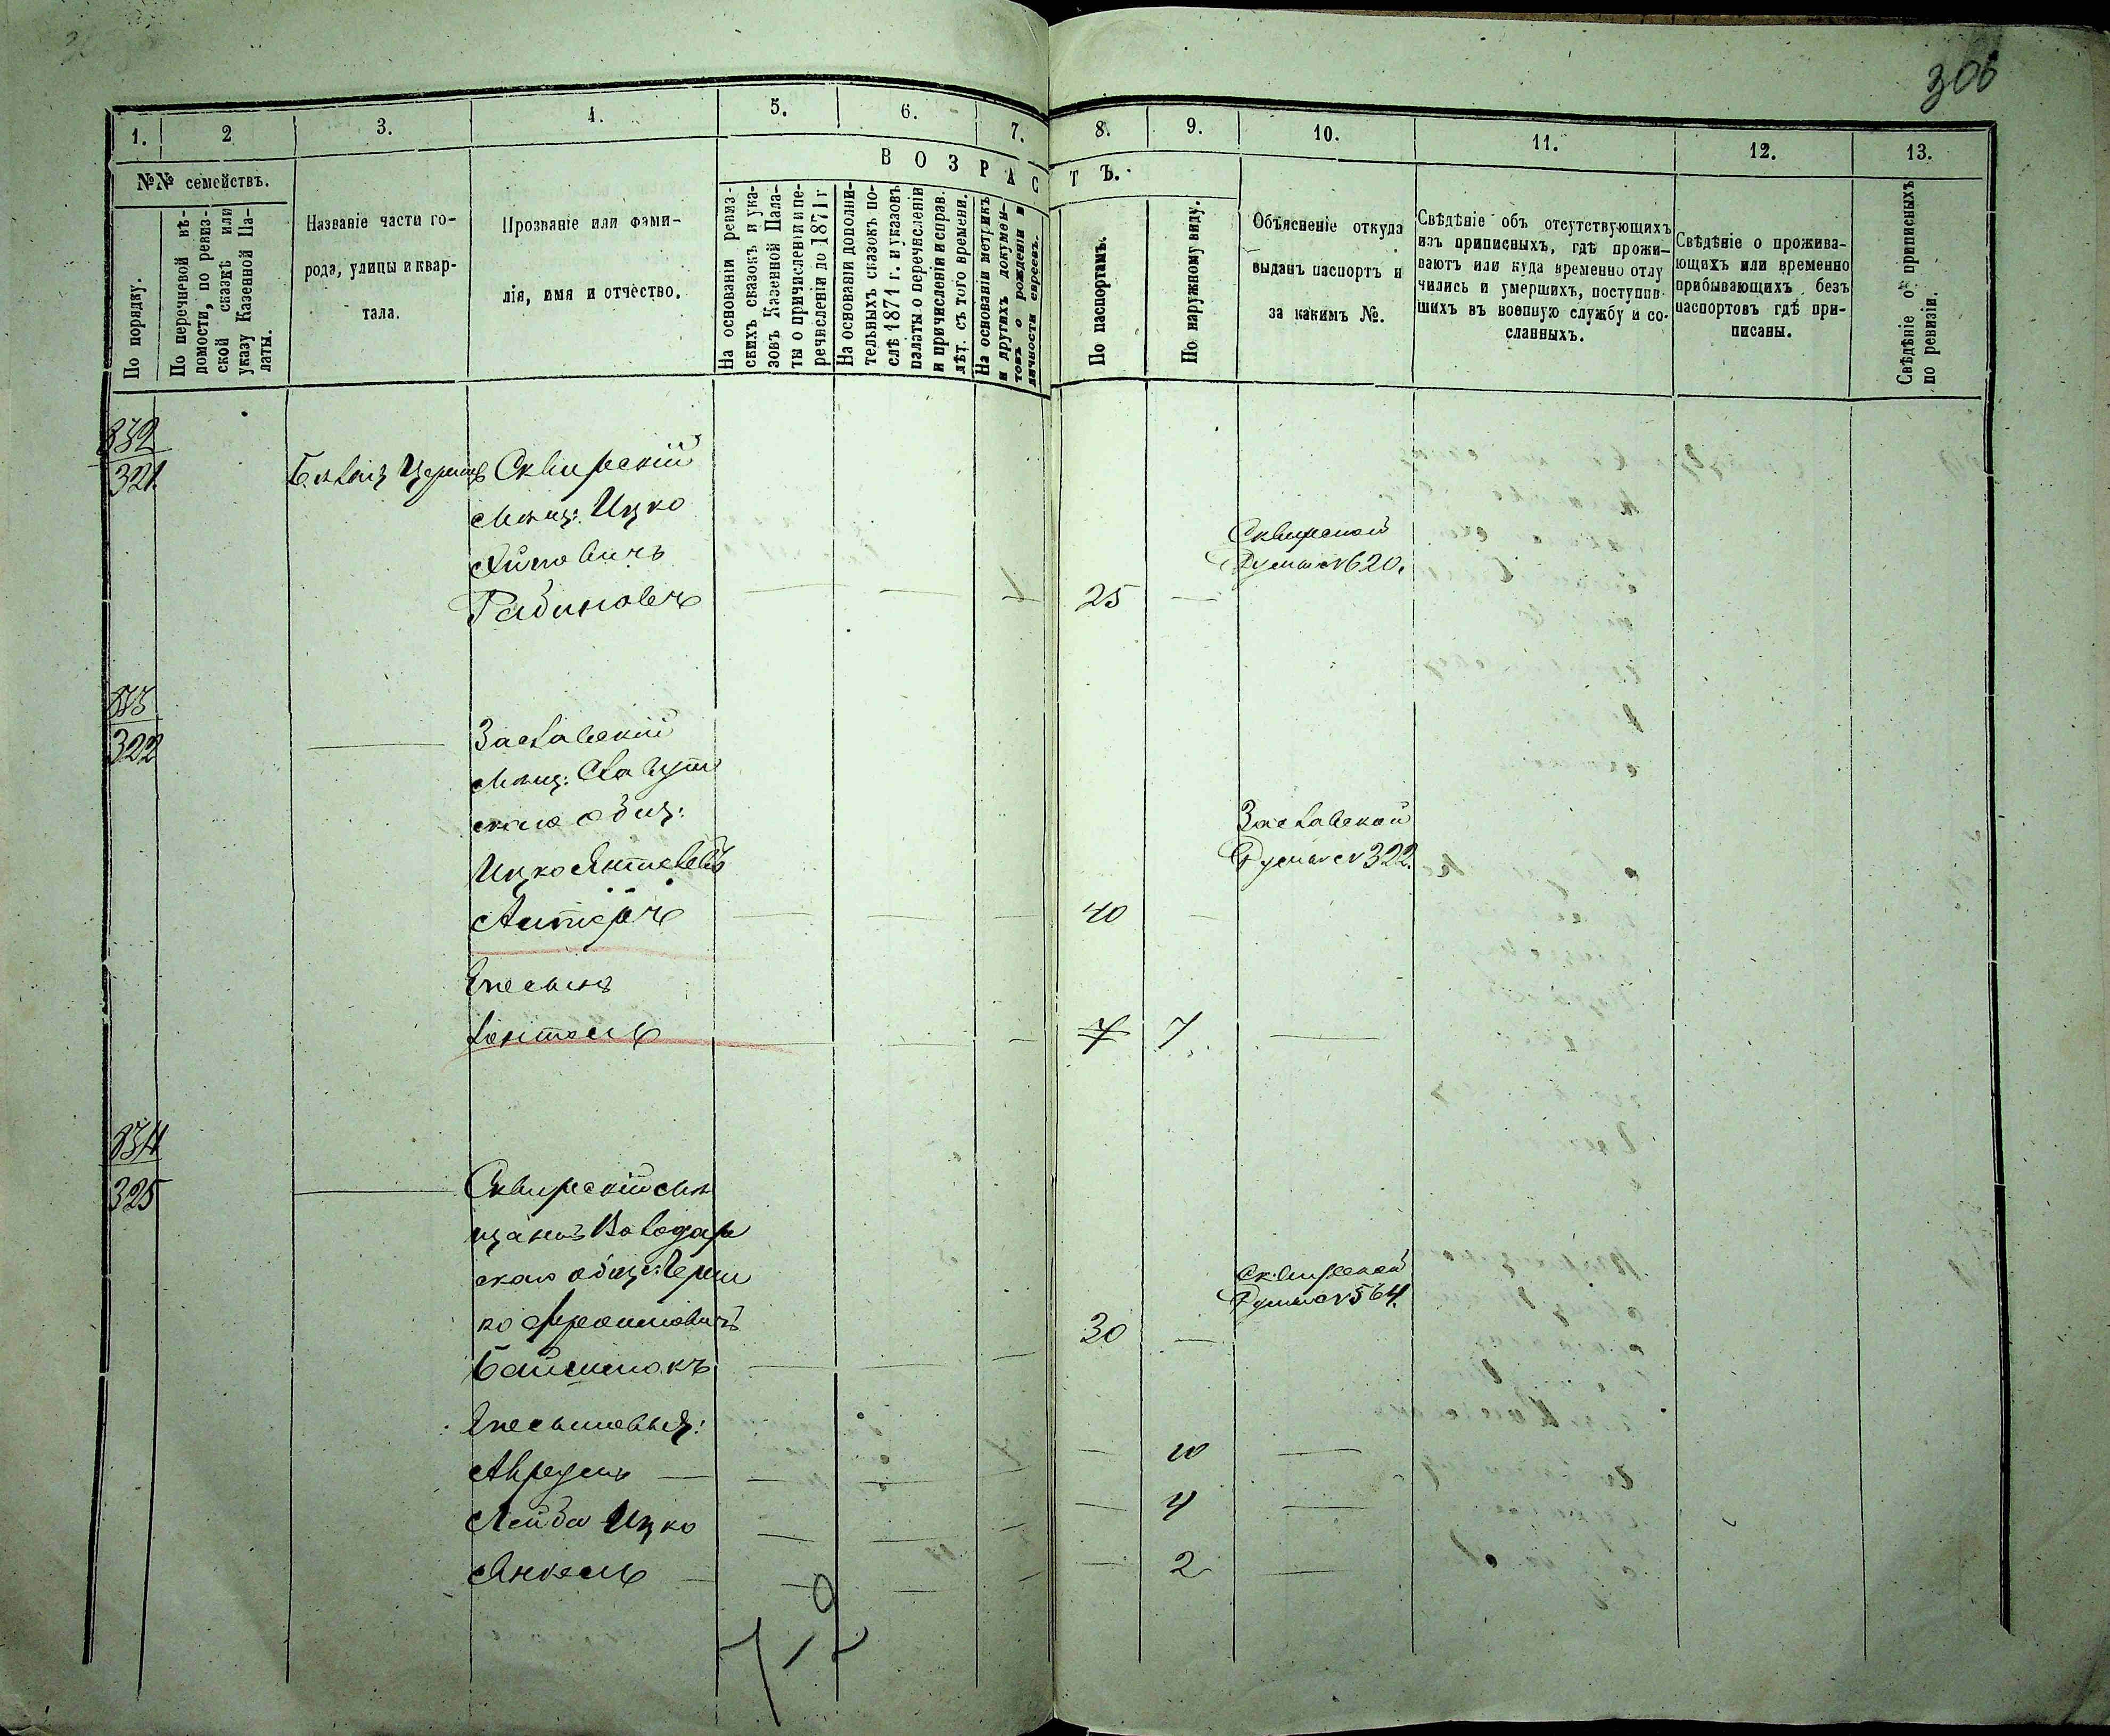 306
1. 2 3. 4. 5. 6. 7. 8. 9. 10. 11. 12. 13.
№№ семействъ.
По порядку.
По перечневой вѣ-
домости, по ревиз-
ской сказкѣ или
указу Казенной Па-
латы.
Названіе части го-
рода, улицы и квар-
тала.
Прозваніе или фами-
лія, имя и отчество.
ВОЗРАСТЪ.
На основаніи ревиз-
скихъ сказокъ и ука-
зовъ Казенной Пала-
ты о причисленіи и пе-
речисленіи до 1871 г
На основаніи дополни-
тельныхъ сказокъ по-
слѣ 1871 г. и указовъ
палаты о перечисленіи
и причисленіи и справ.
лѣт. съ того времени.
На основаніи метрикъ
и другихъ докумен-
товъ о рожденіи и
личности евреевъ.
По паспортамъ.
По наружному виду.
Объясненіе откуда
выданъ паспортъ и
за какимъ №.
Свѣдѣніе объ отсутствующихъ
изъ приписныхъ, гдѣ прожи-
ваютъ или куда временно отлу
чились и умершихъ, поступив-
шихъ въ военную службу и со-
сланныхъ.
Свѣдѣніе о прожива-
ющихъ или временно
прибывающихъ безъ
паспортовъ гдѣ при-
писаны.
Свѣдѣніе о приписныхъ
по ревизіи.
832
321
Сквирскій
мѣщ: Ицко
Рабиновъ
25
Сквирской
Думы №620.
322
Заславскій
мѣщ: Славут
скаго общ:
Ицко
40
Заславской
Думы №322.
Его сынъ
7 7
834
325
Сквирскій мѣ
щанинъ Володар
скаго общ: Герш
ко
30
Сквирской
Думы №564.
Его сыновья:
Аврумъ
10
Лейба Ицко
4
Янкель
2